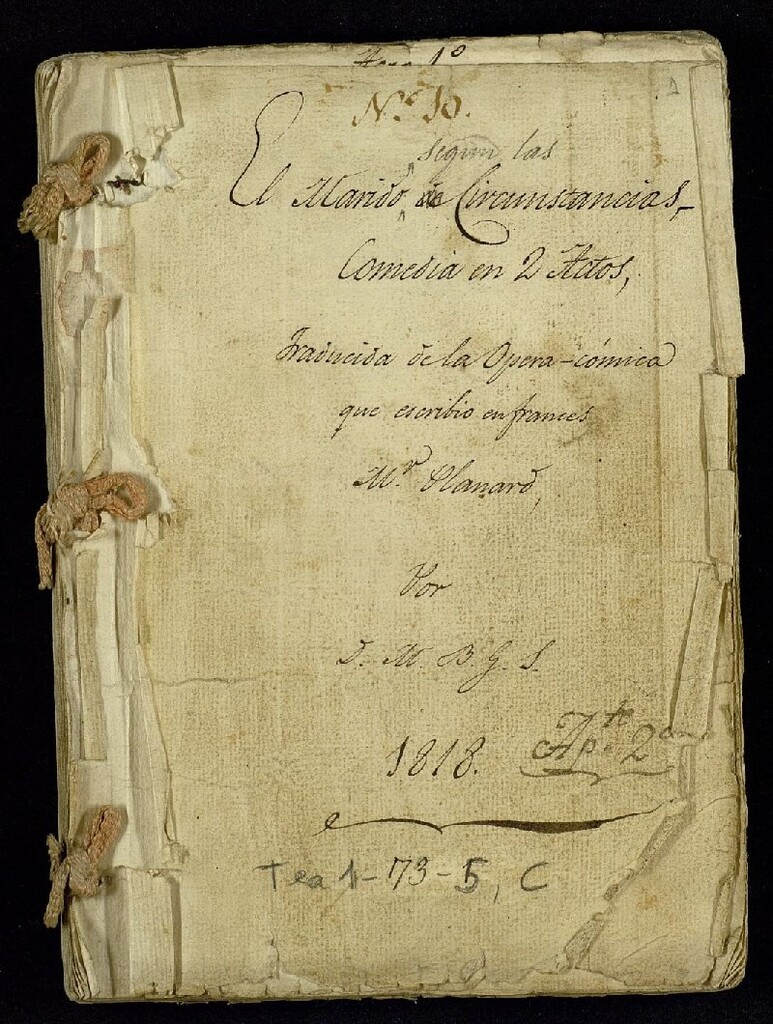 1º
Nº 10.
segun las
El Marido de Circunstancias,
Comedia en 2 Actos,
Traducida de la Opera-cómica
que escribio en frances
Mʳ Planard,
Por
D. M. B. G. S.
1818. Apᵗᵉ 2
Tea 1-73-5, C